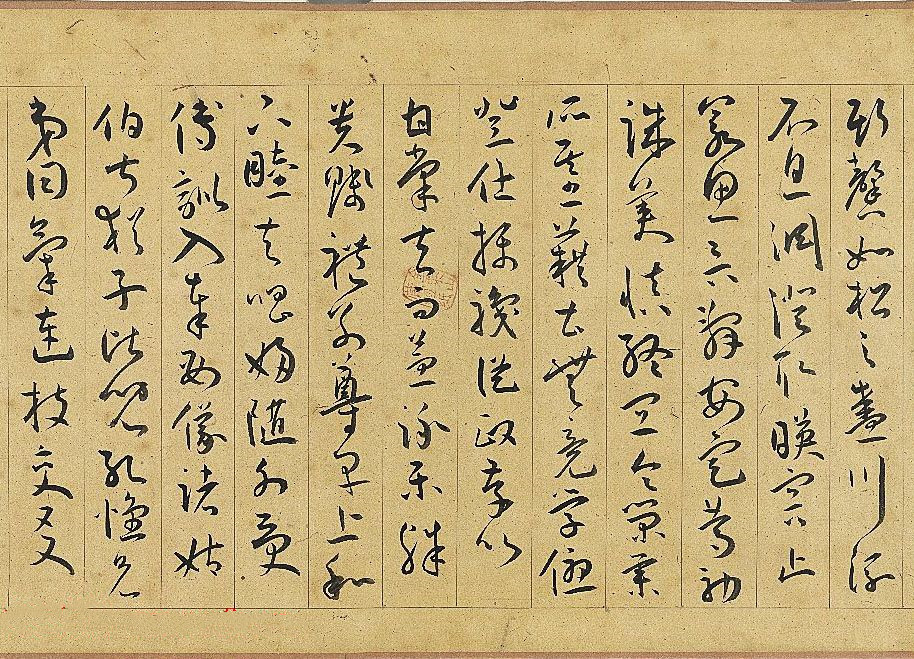 斯馨如松之盛川流
不息淵澄取暎容止
若思言辭安定篤初
誠美慎終宜令榮業
所基藉甚無竟學優
登仕攝職從政存以
甘棠去而益詠樂殊
貴賤禮別尊卑上和
下睦夫唱婦隨外受
傅訓入奉母儀諸姑
伯叔猶子比兒孔懷兄
弟同氣連枝交友